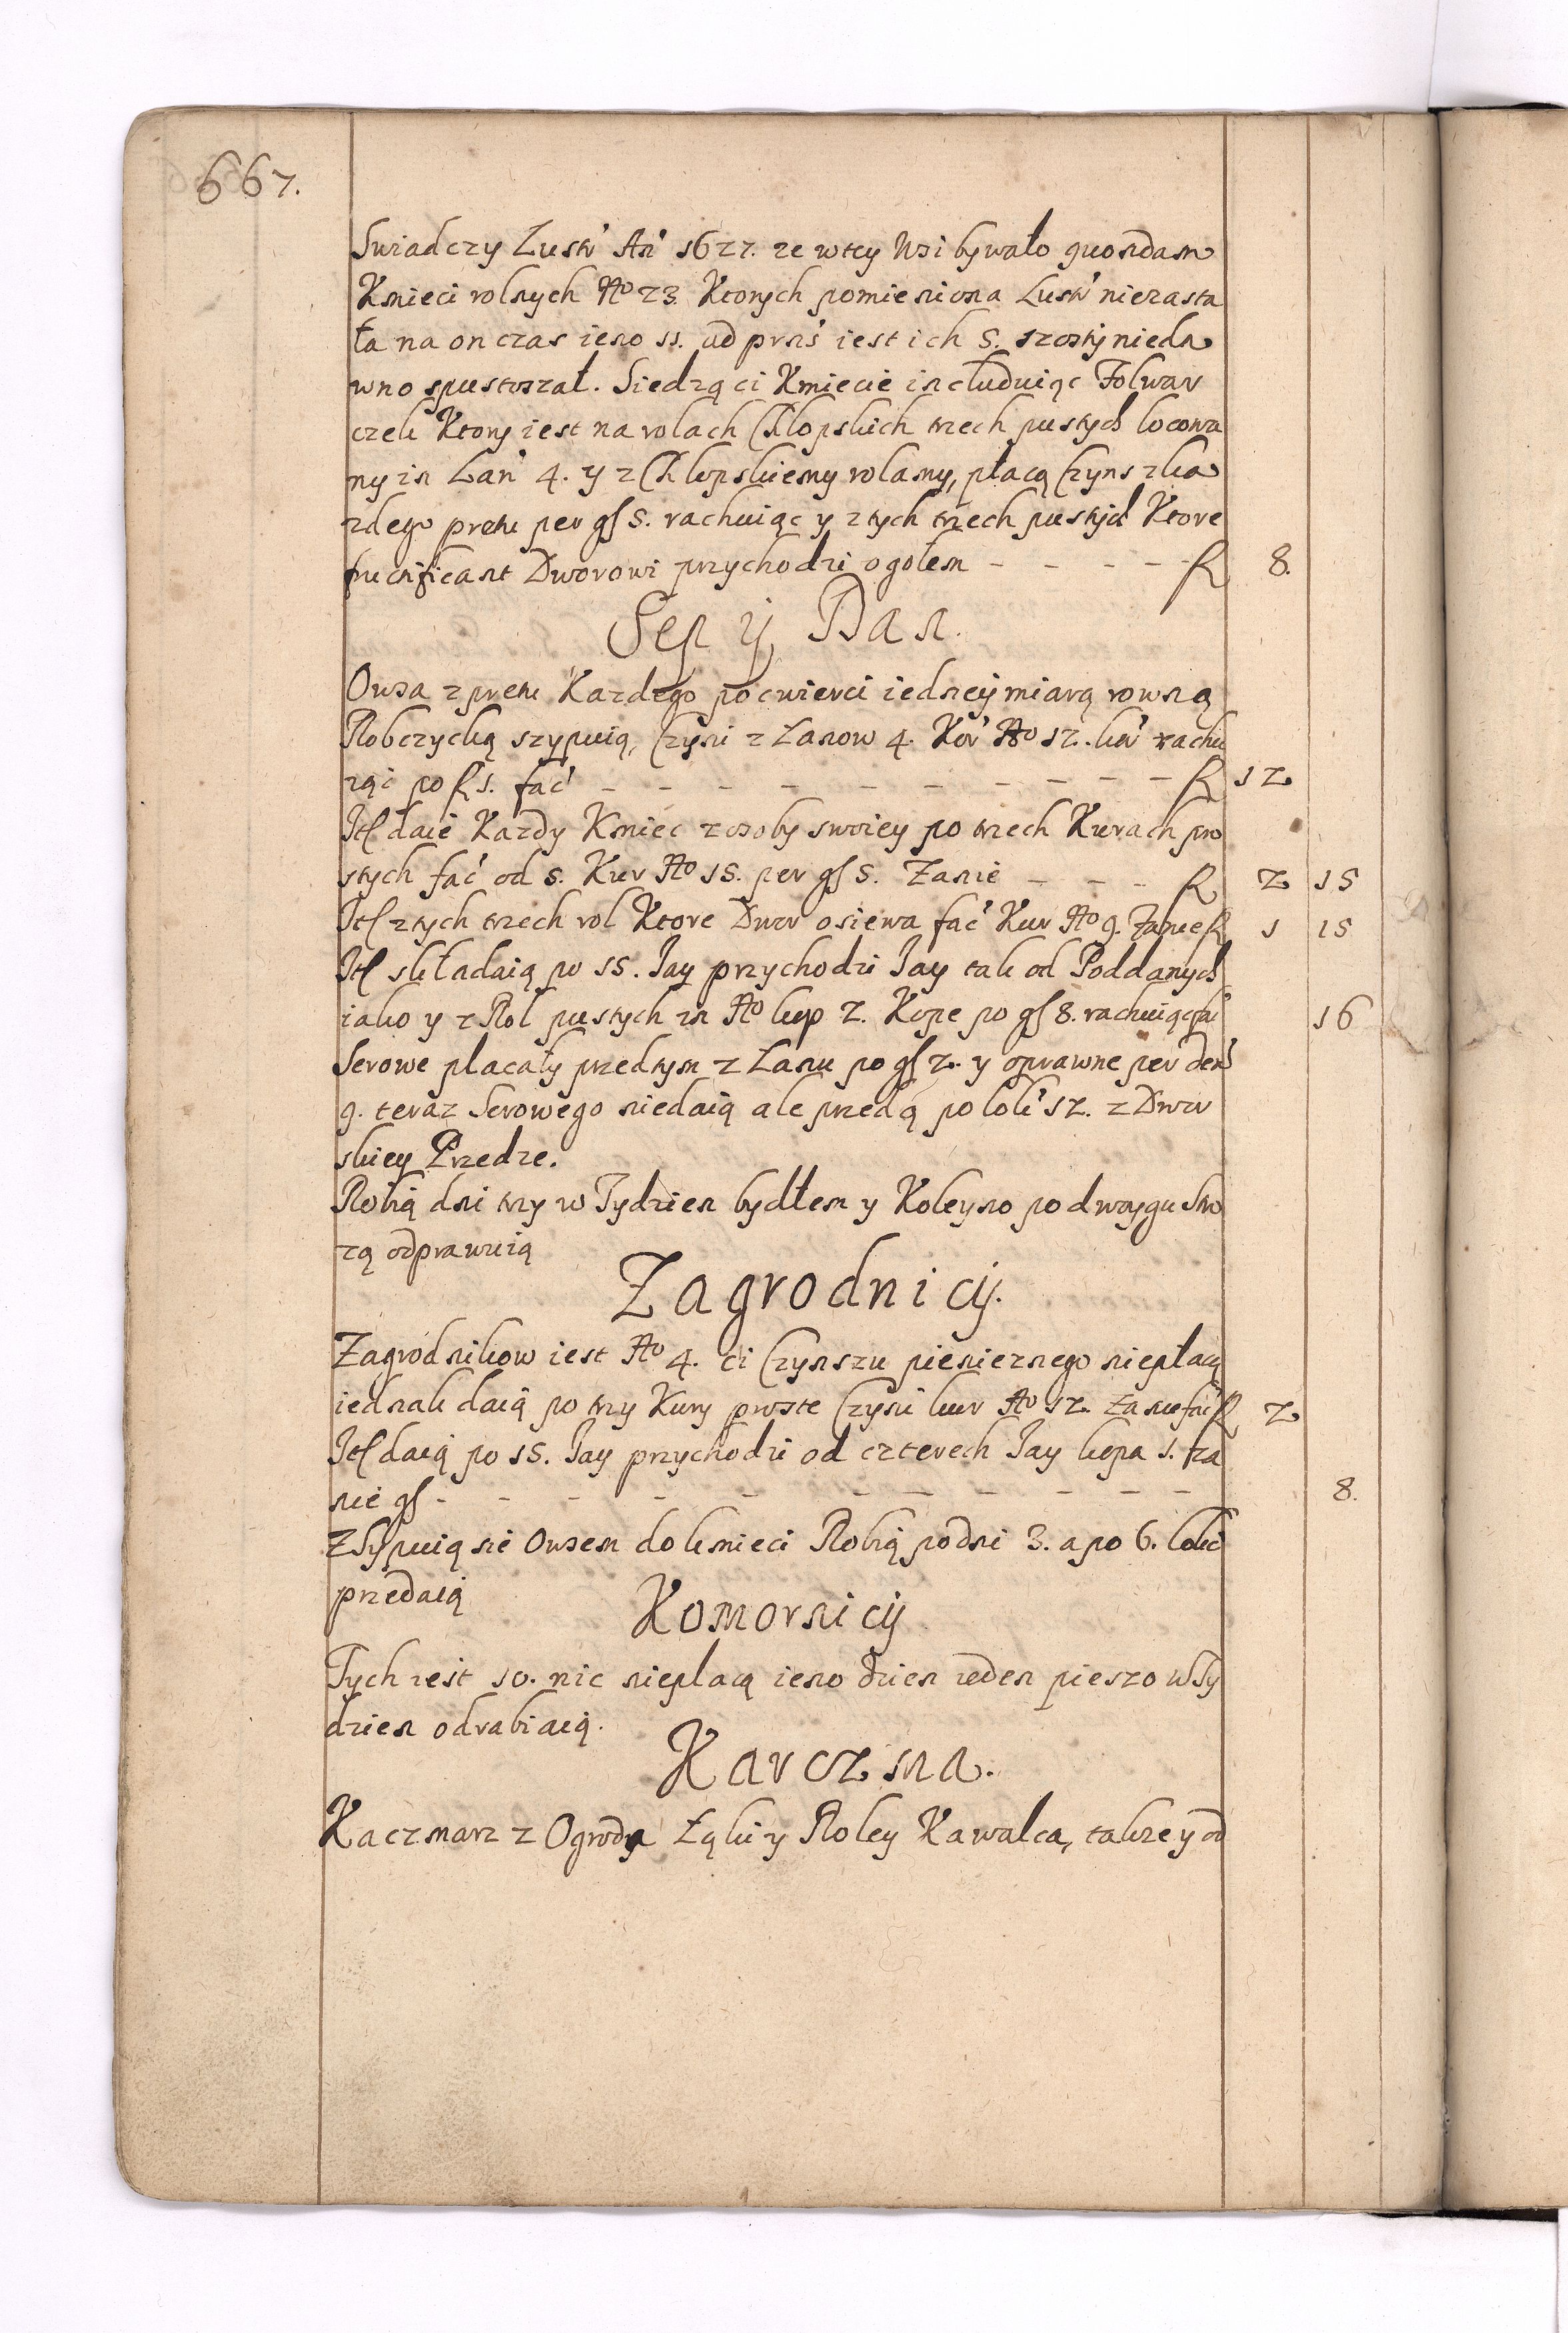 667.
Swiadczy Lustr' An' 1627. ze w tey Wsi bywało quondam
Kmieci rolnych No 23 Ktorych pomieniona Lustr' niezasta
ła na on czas ieno 11. ad prns' iest ich 5. szosty nieda
wno spustoszał. Siedzą ci Kmiecie includuiąc Folwar
czek Ktory iest na rolach Chlopskich trzech pustych locowa
ny in Lan' 4. y z Chlopskiemy rolamy, płacą Czynsz ka
zdego pretu per gl 5. rachuiąc y z tych trzech pustych Ktore
fructificant Dworowi przychodzi ogołem - - - - - R 8.
Sep y Dan.
Owsa z pretu Kazdego po cwierci iedney miarą rowną
Robczycką szypuią, Czyni z Lanow 4. Kor' No 12. kor' rachu
iąc po R 1. fac' - - - - - - - - - R 12
Itl daie Kazdy Kmiec z osoby swoiey po trzech Kurach pro
stych fac' od 5. Kur No 15. per gl 5. Zanie - - - R 2 15
Itl z tych trzech rol Ktore Dwor osiewa fac' Kur No 9. Zanie R 1 15
Itl składaią po 15. Jay przychodzi Jay tak od Poddanych
iako y z Rol pustych in No kop 2. Kope po gl 8. rachuiąc fac' 16
Serowe płacały przedtym z Lanu po gl 2. y oprawne per den'
9. teraz Serowego niedaią ale przedą po lok' 12. z Dwor
skiey Przedze.
Robią dni trzy w Tydzien bydłem y Koleyno po dwoygu Stro
zą odprawuią
Zagrodnicy.
Zagrodnikow iest No 4. ci Czynszu pienieznego niepłacą
iednak daią po trzy Kury proste Czyni kur No 12. Za nie fac' R 2
Itl daią po 15. Jay przychodzi od czterech Jay kopa 1. za
nie gl - - - - - - - - - - 8.
Zsypuią sie Owsem do kmieci Robią po dni 3. a po 6. lokci
przedaią
Komornicy
Tych iest 10. nic niepłacą ieno dzien ieden pieszo w Ty
dzien odrabiaią.
Karczma.
Kaczmarz z Ogroda Łąki y Roley Kawalca, takze y od